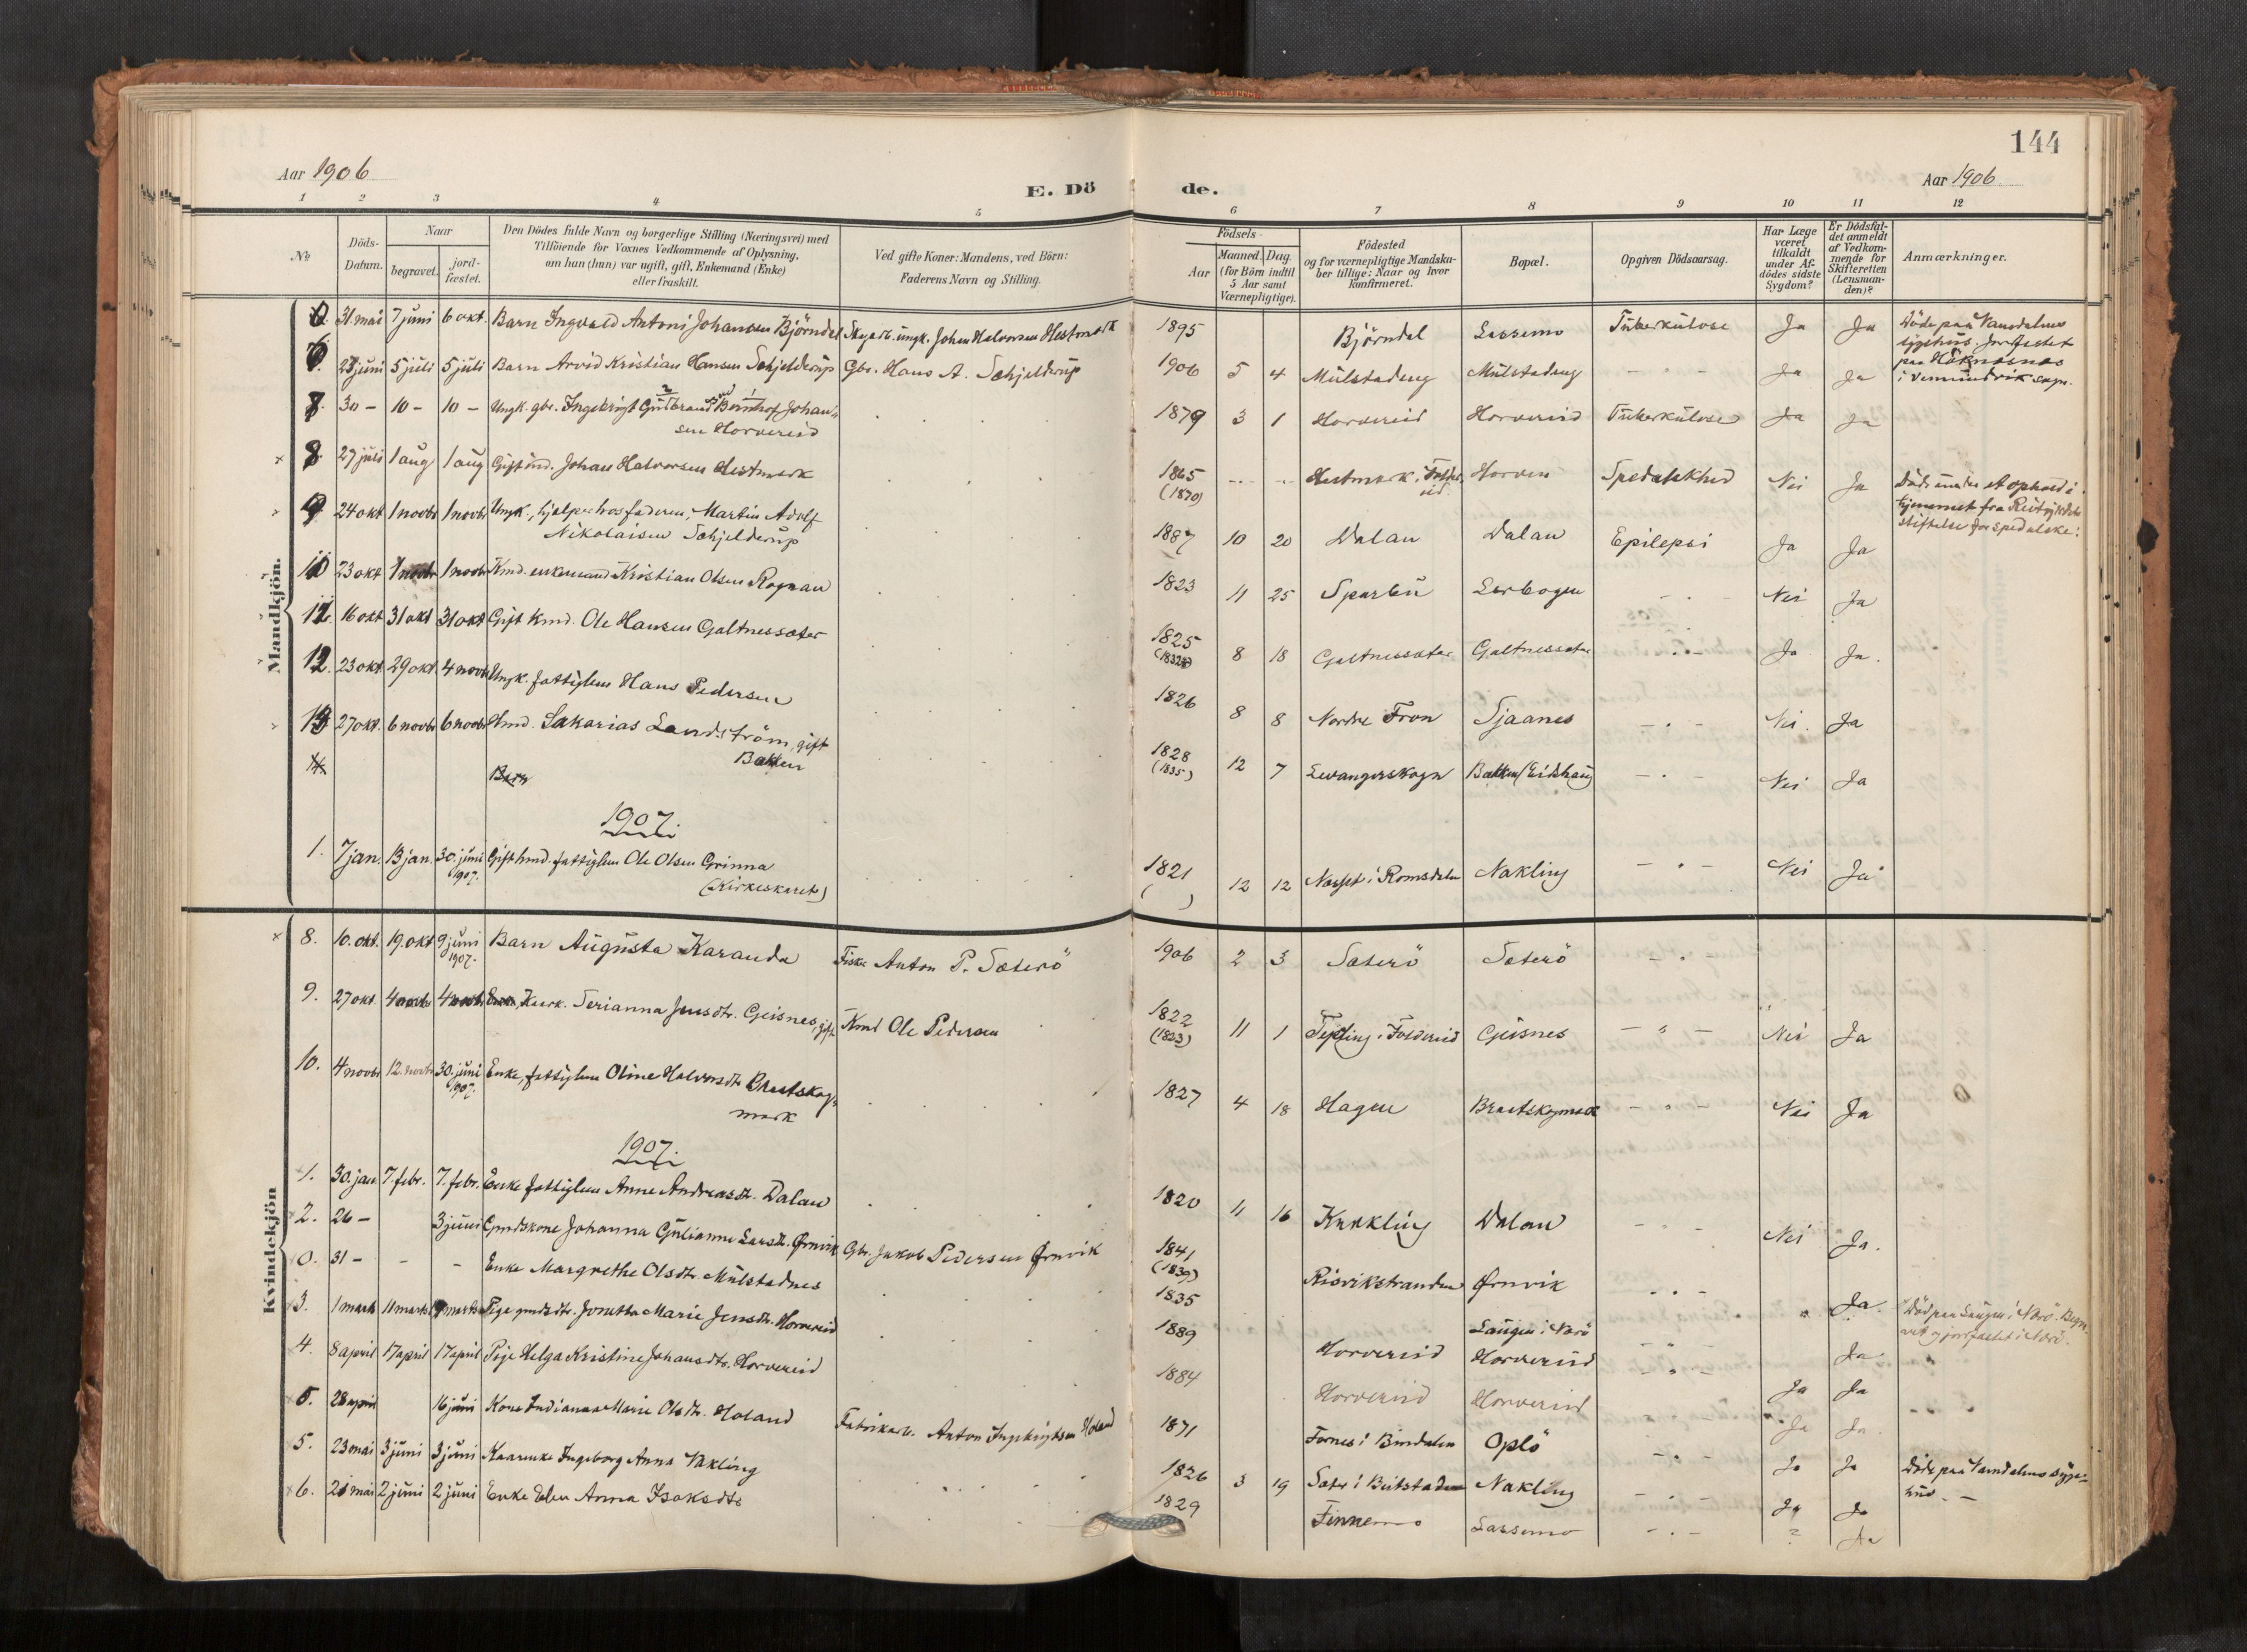 144
Aar 1906
E. Dö de.
Aar 1906
1 2 3 4 5 6 7 8 9 10 11 12
No
Döds-Datum.
Naar
begravet.
jord-fæstet.
Den Dödes fulde Navn og borgerlige Stilling (Næringsvei) med
Tilföiende for Voxnes Vedkommende af Oplysning,
om han (hun) var ugift, gift, Enkemand (Enke)
eller fraskilt.
Ved gifte Koner: Mandens, ved Börn:
Faderens Navn og Stilling.
Födsels-
Aar
Maaned. Dag.
(for Börn indtil
5 Aar samt
Værnepligtige).
Födested
og for værnepligtige Mandska-
ber tillige: Naar og hvor
konfirmeret.
Bopæl.
Opgiven Dödsaarsag.
Har Læge
været
tilkaldt
under Af-
dödes sidste
Sygdom?
Er Dödsfal-
det anmeldt
af Vedkom-
mende for
Skifteretten
(Lensman-
den)?
Anmærkninger.
Mandkjön.
0. 31 mai 7 juni 6 okt. Barn Ingvald Antoni Johansen Björndal ungk. Johan Halvorsen Hestmark 1895 Björndal Lassemo Tuberkulose Ja Ja Döde paa Namdalens
sygehus. Jordfestet
paa Höknesnes
i Vemundvik sogn.
6. juni 5 juli 5 juli Barn Arvid Kristian Hansen Schjelderup Gbr. Hans A. Schjelderup 1906 5 4 Mulstadeng Mulstadeng - " - Ja Ja
7. 30 - 10 - 10 - Ungk. gbr. Ingebrigt Gulbrand Bernhof Johan-
sen Horvereid 1879 3 1 Horvereid Horvereid Tuberkulose Ja Ja
8. 27 juli 1 aug 1 aug Gift ind. Johan Halvorsen Hestmark 1865
(1870) Hestmark i Folder-
eid Horven Spedalskhed Nei Ja Döde under et ophold i
hjemmet fra Reitgjerdets
stiftelse for spedalske.
9 24 okt 1 novbr 1 novbr Ungk., hjelper hos faderen, Martin Adolf
Nikolaisen Schjelderup 1887 10 20 Dalan Dalan Epilepsi Ja Ja
10 23 okt 1 novbr 1 novbr Kmd. enkemand Kristian Olsen Rognan 1823 11 25 Sparbu Lerbogen - " - Nei Ja
11. 16 okt 31 okt 31 okt Gift Kmd. Ole Hansen Galtnessæter 1825 8 18 Galtnessæter Galtnessæter - " - Ja Ja.
12. 23 okt. 29 okt. 4 novbr Ungk. fattiglem Hans Pedersen 1826 8 8 Nordre Fron Sjaanes - " - Nei. Ja
13 27 okt. 6 novbr 6 novbr Hmd. Sakarias Landström, gift
Bakken 1828
(1835) 12 7 Levangerskogn Bakken/Eidshaug - " - Nei Ja
14 Barn
1907.
1. 7 jan. 13 jan. 30. juni
1907. Gift hmd. fattiglem Ole Olsen Grinna
(Kirkeskaret) 1821
( ) 12 12 Nesset i Romsdalen Nakling - " - Nei Ja
Kvindekjön
8. 10. okt. 19. okt 9 juni
1907. Barn Augusta Karanda Fisker Anton P. Sæterö 1906 2 3 Sæterö Sæterö - " -
9. 27 okt. 4 novbr 4 novbr Kaark. Serianna Jensdtr. Geisnes, gift Kmd Ole Pedersen 1822
(1823) 11 1 Tepling i Foldereid Geisnes - " - Nei Ja
10. 4 novbr 12. novbr 30. juni
1907. Enke, fattiglem Oline Halvorsdtr Brætskogs-
mark 1827 4 18 Hagen Brætskogmark - " - Nei Ja
1907.
1. 30. jan 7. febr. 7. febr. Enke fattiglem Anne Andreasdtr. Dalan 1820 11 16 Kvakling Dalan - " - Nei Ja.
2. 26 - 3 juni Gmdskone Johanna Gulianna Larsdtr. Ørnvik Gbr. Jakob Pedersen Ørnvik 1841
(1839) Risvikstranden Ørnvik - " - " Ja.
0. 31 - - - Enke Margrethe Olsdtr. Mulstadnes 1835 Laugen i Nærö Ja Död paa Laugen i Nærö. Begra-
vet og jordfæstet i Nærö.
3. 1 mars 11 mars mars Pige gmdsdtr. Jonetta Marie Jensdtr. Horvereid 1889 Horvereid Horvereid - " - Ja Ja
4. 8 april 17 april 17 april Pige Helga Kristine Johansdtr. Horvereid 1884 Horvereid Horvereid Ja Ja
0. 28 april 16 juni Kone Indianna Marie Olsdtr. Holand Fabrikarb. Anton Ingebrigtsen Holand 1871 Fornes i Bindalen Oplö - " - Ja Ja Döde paa Namdalens syge-
hus. -
5. 23 mai 3 juni 3 juni Kaarenke Ingeborg Anna Nakling 1826 3 19 Sæter i Beitstaden Nakling - " - Ja Ja
6. 21 mai 2 juni 2 juni Enke Elen Anna Isaksdtr 1829 Finnemo Lassemo - " - ? Ja